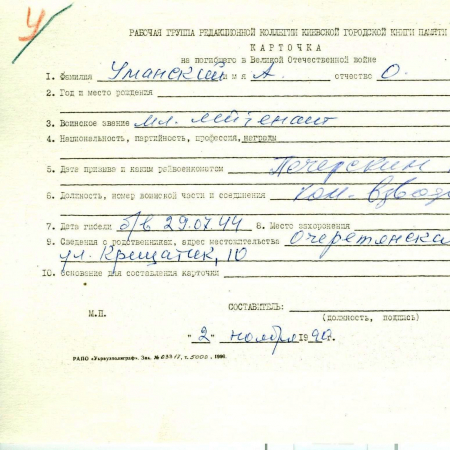 У
РАБОЧАЯ ГРУППА РЕДАКЦИОННОЙ КОЛЛЕГИИ КИЕВСКОЙ ГОРОДСКОЙ КНИГИ ПАМЯТИ
КАРТОЧКА
на погибшего в Великой Отечественной войне
1. Фамилия Уманский имя А. отчество О.
2. Год и место рождения
3. Воинское звание мл. лейтенант
4. Национальность, партийность, профессия, награды
5. Дата призыва и каким райвоенкоматом Печерским
6. Должность, номер воинской части и соединения ком. взвода
7. Дата гибели б/в 29.07.44 8. Место захоронения
9. Сведения о родственниках, адрес местожительства Очеретянска
ул. Крещатик, 10
10. Основание для составления карточки
СОСТАВИТЕЛЬ:
М.П. (должность, подпись)
"2" ноября 1990 г.
РАПО «Укрвузполиграф». Зак. № т. 5000, 1990.